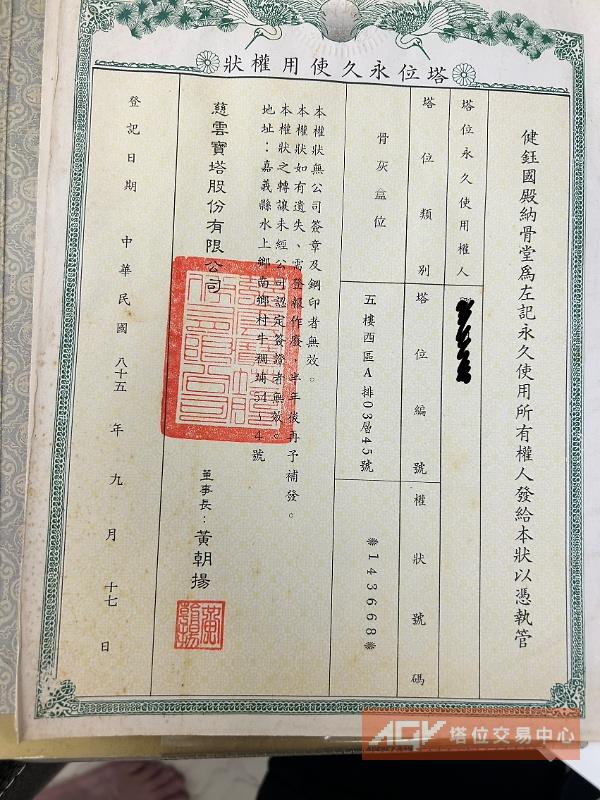 塔位永久使用權狀
健鈺國殿納骨堂為左記永久使用所有權人發給本狀以憑執管
塔位永久使用權人
塔位類別
塔位編號
權狀號碼
骨灰盒位
五樓西區A排03層45號
※143668※
本權狀無公司簽章及鋼印者無效。
本權狀如有遺失、需登報作廢，半年後再予補發。
本權狀之轉讓未經公司認定簽證者無效。
地址：嘉義縣水上鄉南鄉村牛稠埔54
號
慈雲寶塔股份有限公司
董事長：黃朝揚
登記日期 中華民國 八十五 年 九 月 十七 日
AGV 塔位交易中心